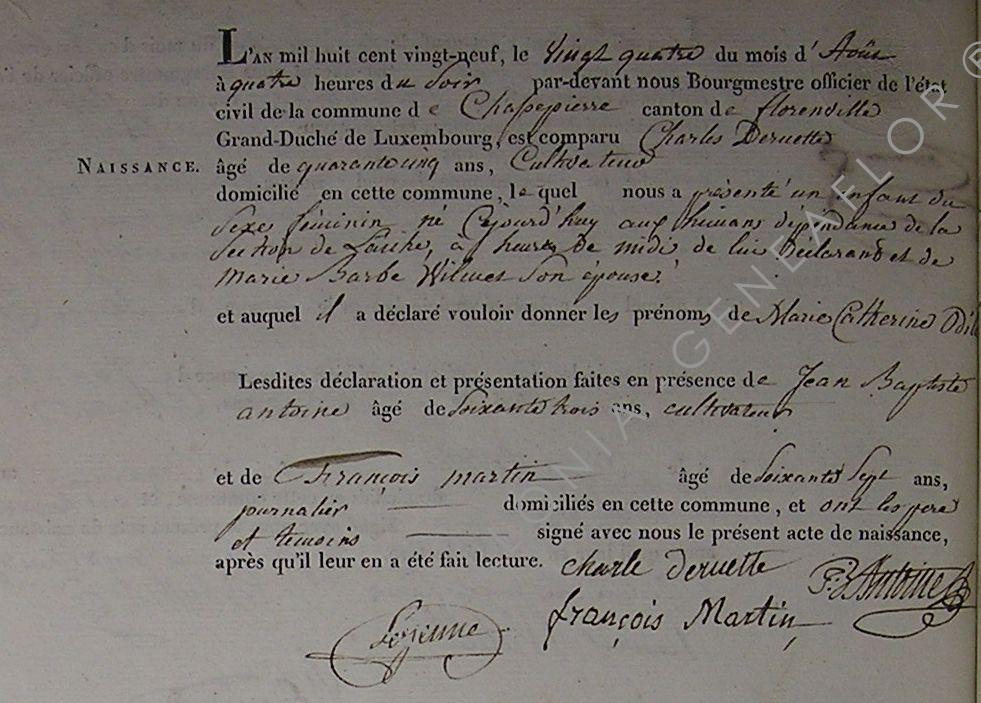 L'AN mil huit cent vingt-neuf, le Vingt quatre du mois d'Août
à quatre heures du Soir par-devant nous Bourgmestre officier de l'état
civil de la commune de Chassepierre canton de florenville
Grand-Duché de Luxembourg, est comparu Charles Deruette
NAISSANCE. âgé de quarantecinq ans, Cultivateur
domicilié en cette commune, le quel nous a présenté un infant du
Sexe féminin né Cejourd'huy aux hümans dépendance de la
Section de Laiche, à heures de midi de lui Déclarand et de
Marie Barbe Wilmet Son épouse.
et auquel il a déclaré vouloir donner les prénoms de Marie Catherine Odil
Lesdites déclaration et présentation faites en présence de Jean Baptiste
antoine âgé de Soixante trois ans, cultivateur
et de François martin âgé de Soixante Sept ans,
journalier domiciliés en cette commune, et ont les pere
et témoins signé avec nous le présent acte de naissance,
après qu'il leur en a été fait lecture. charle deruette
Antoine
françois Martin
GENEAFLOR ®